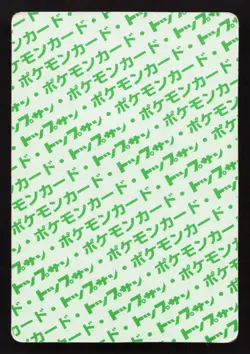 トップサン・
ポケモンカード・トップサン
トップサン・ポケモンカード・
ポケモンカード・トップサン・
・トップサン・ポケモンカード
ポケモンカード・トップサン・
・トップサン・ポケモンカード
ポケモンカード・トップサン・
・トップサン・ポケモンカード
ポケモンカード・トップサン・
・トップサン・ポケモンカード
ポケモンカード・トップサン・
・トップサン・ポケモンカード
カード・トップサン・